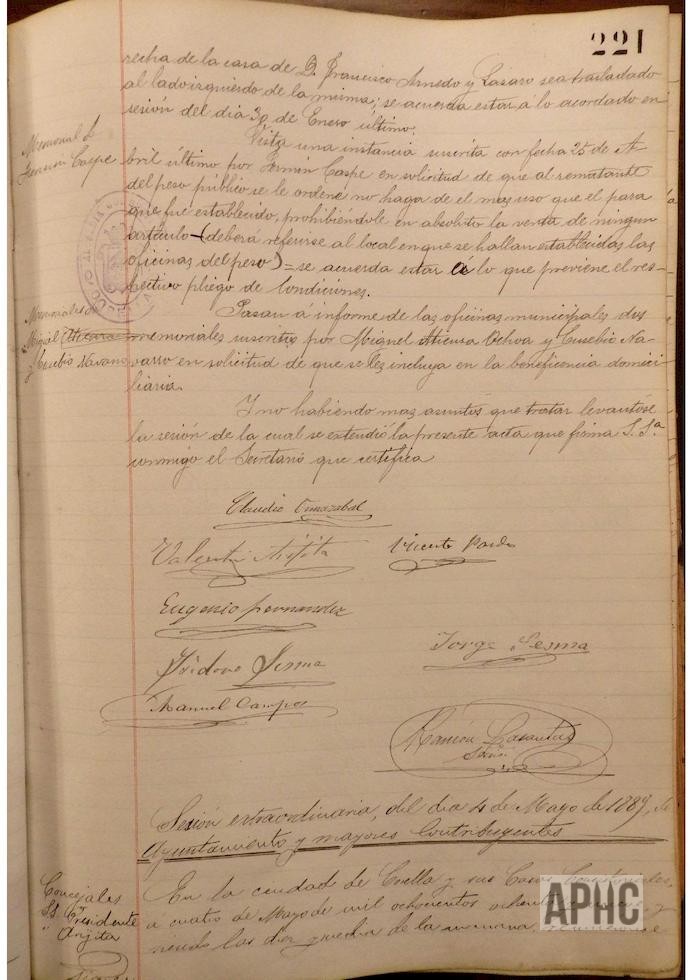 221
recha de la casa de D. Francisco Arnedo y Lasaro sea trasladado
al lado izquierdo de la misma; se acuerda estar á lo acordado en
sesión del dia 30 de Enero último.
Memorial de
Fermin Caspe
Vista una instancia suscrita con fecha 25 de A
bril último por Fermin Caspe en solicitud de que al rematante
del peso público se le ordene no haga de el mas uso que el para
que fue establecido, prohibiéndole en absoluto la venta de ningun
artículo (deberá referirse al local en que se hallan establecidas las
oficinas del peso) = se acuerda estar á lo que previene el res-
pectivo pliego de condiciones.
Memoriales de
Miguel Atienza
y Eusebio Navarro
Pasan á informe de las oficinas municipales dos
memoriales suscritos por Miguel Atienza Ochoa y Eusebio Na-
varro en solicitud de que se les incluya en la beneficencia domici
liaria.
Y no habiendo mas asuntos que tratar levantóse
la sesión de la cual se estendió la presente acta que firma S. Sª
conmigo el Secretario que certifica
Claudio
Valentin Arijita
Vicente Pardo
Eugenio Fernandez
Jorge Sesma
Isidoro Sesma
Manuel Campos
Ramón
Srio
Sesión extraordinaria, del dia 4 de Mayo de 1889, de
Ayuntamiento y mayores Contribuyentes
Concejales
SS. Presidente
" Arijita
En la ciudad de Corella y sus Casas Consistoriales,
á cuatro de Mayo de mil ochocientos ochenta y nueve, y
siendo las diez y media de la mañana,
APHC